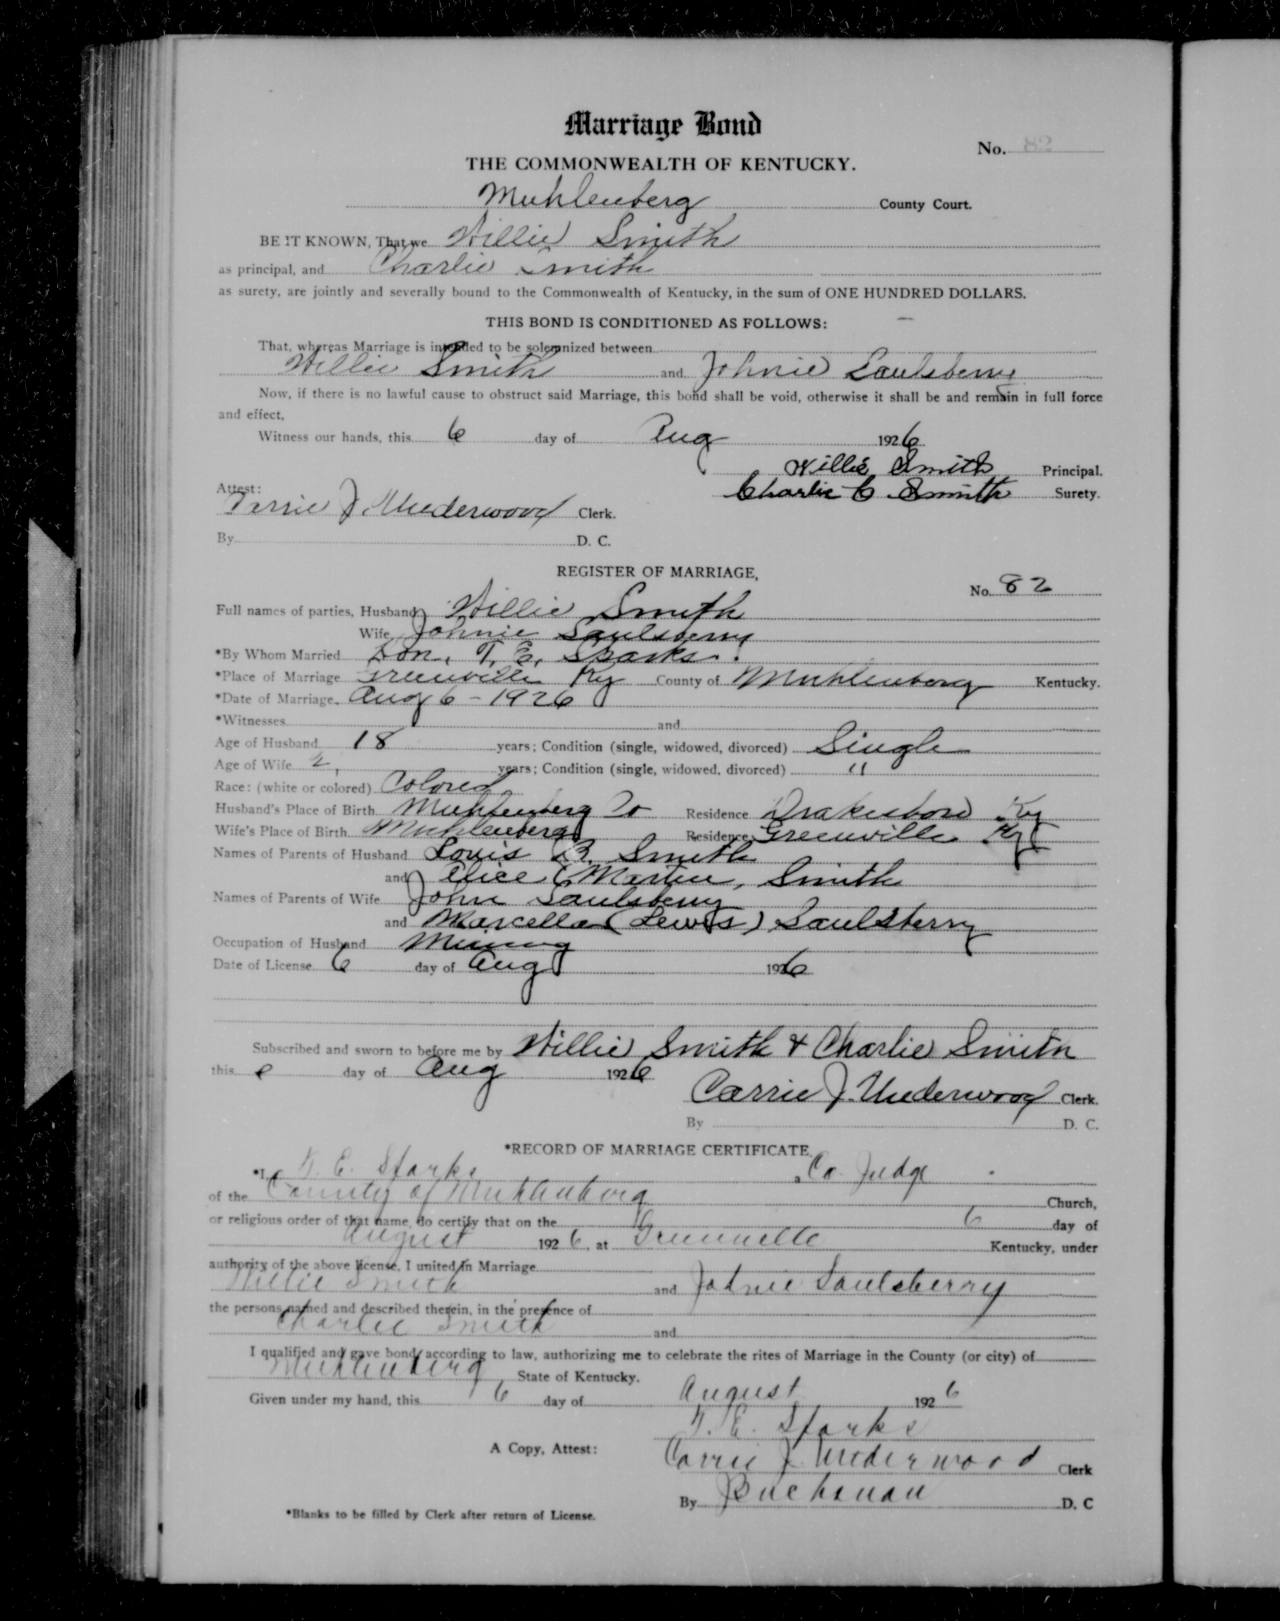 Marriage Bond
No. 82
THE COMMONWEALTH OF KENTUCKY.
Muhlenberg County Court.
BE IT KNOWN, That we Willie Smith
as principal, and Charlie Smith
as surety, are jointly and severally bound to the Commonwealth of Kentucky, in the sum of ONE HUNDRED DOLLARS.
THIS BOND IS CONDITIONED AS FOLLOWS:
That, whereas Marriage is intended to be solemnized between
Willie Smith and Johnie Saulsberry
Now, if there is no lawful cause to obstruct said Marriage, this bond shall be void, otherwise it shall be and remain in full force
and effect,
Witness our hands, this 6 day of Aug 1926
Willie Smith Principal.
Charlie C Smith Surety.
Attest:
Carrie J. Underwood Clerk.
By D. C.
REGISTER OF MARRIAGE,
No. 82
Full names of parties, Husband Willie Smith
Wife Johnie Saulsberry
*By Whom Married Hon. T. E. Sparks.
*Place of Marriage Greenville Ky County of Muhlenberg Kentucky.
*Date of Marriage, Aug 6 - 1926
*Witnesses and
Age of Husband 18 years; Condition (single, widowed, divorced) Single
Age of Wife years; Condition (single, widowed, divorced) "
Race: (white or colored) Colored
Husband's Place of Birth Muhlenberg Co Residence Drakesboro Ky
Wife's Place of Birth Muhlenberg Residence Greenville Ky
Names of Parents of Husband Louis B. Smith
and Alice (Martin, Smith
Names of Parents of Wife John Saulsberry
and Marcella (Lewis) Saulsberry
Occupation of Husband Mining
Date of License 6 day of Aug 1926
Subscribed and sworn to before me by Willie Smith & Charlie Smith
this 6 day of Aug 1926
Carrie J. Underwood Clerk.
By D. C.
*RECORD OF MARRIAGE CERTIFICATE.
*I, T. E. Sparks, Co. Judge
of the County of Muhlenberg Church,
or religious order of that name, do certify that on the 6 day of
August 1926, at Greenville Kentucky, under
authority of the above license, I united in Marriage
Willie Smith and Johnie Saulsberry
the persons named and described therein, in the presence of
Charlie Smith and
I qualified and gave bond according to law, authorizing me to celebrate the rites of Marriage in the County (or city) of
Muhlenberg, State of Kentucky.
Given under my hand, this 6 day of August 1926
T. E. Sparks
A Copy, Attest: Carrie J Underwood Clerk
By Buchanan D. C
*Blanks to be filled by Clerk after return of License.